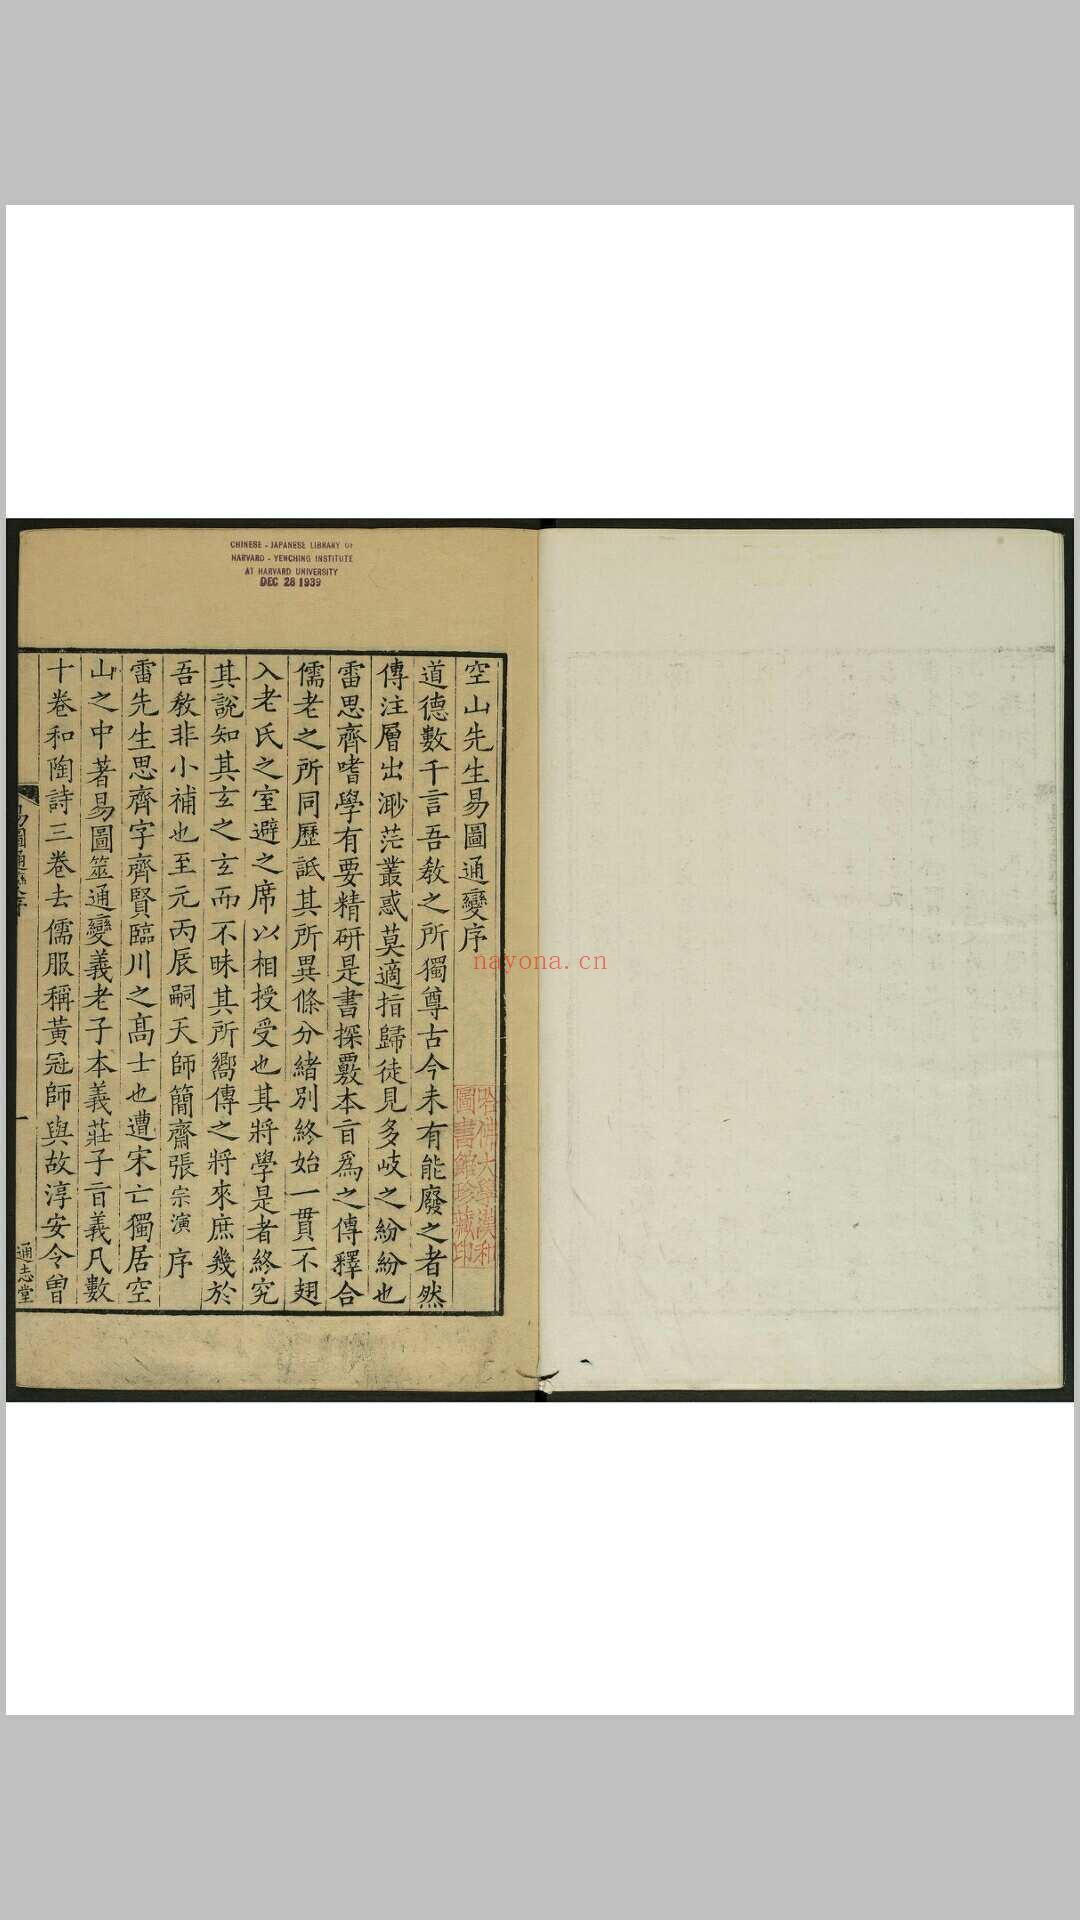 CHINESE - JAPANESE LIBRARY OF
HARVARD - YENCHING INSTITUTE
AT HARVARD UNIVERSITY
DEC 28 1939
空山先生易圖通變序
道德數千言吾教之所獨尊古今未有能廢之者然
傳注層出渺茫叢惑莫適指歸徒見多岐之紛紛也
雷思齊嗜學有要精研是書探覈本旨爲之傳釋合
儒老之所同歷詆其所異條分緒別終始一貫不翅
入老氏之室避之席以相授受也其將學是者終究
其說知其玄之玄而不昧其所嚮傳之將來庶幾於
吾教非小補也至元丙辰嗣天師簡齋張宗演序
雷先生思齊字齊賢臨川之髙士也遭宋亡獨居空
山之中著易圖筮通變義老子本義莊子旨義凡數
十卷和陶詩三卷去儒服稱黃冠師與故淳安令曾
易圖通變序
一
通志堂
哈佛大學漢和
圖書館珍藏印
nayona.cn